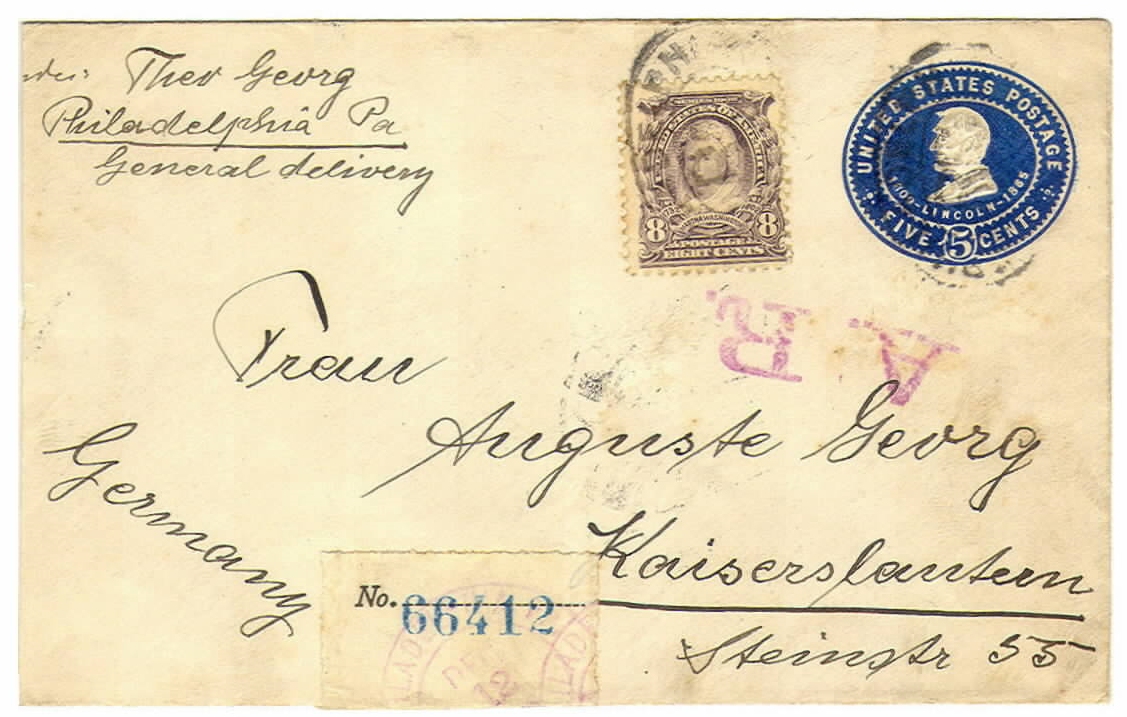 Theo Georg
Philadelphia Pa
General delivery
UNITED STATES POSTAGE
1809-LINCOLN-1865
FIVE 5 CENTS
8 8
POSTAGE
EIGHT CENTS
A. R.
Frau
Auguste Georg
Kaiserslautern
Steinstr 55
Germany
No. 66412